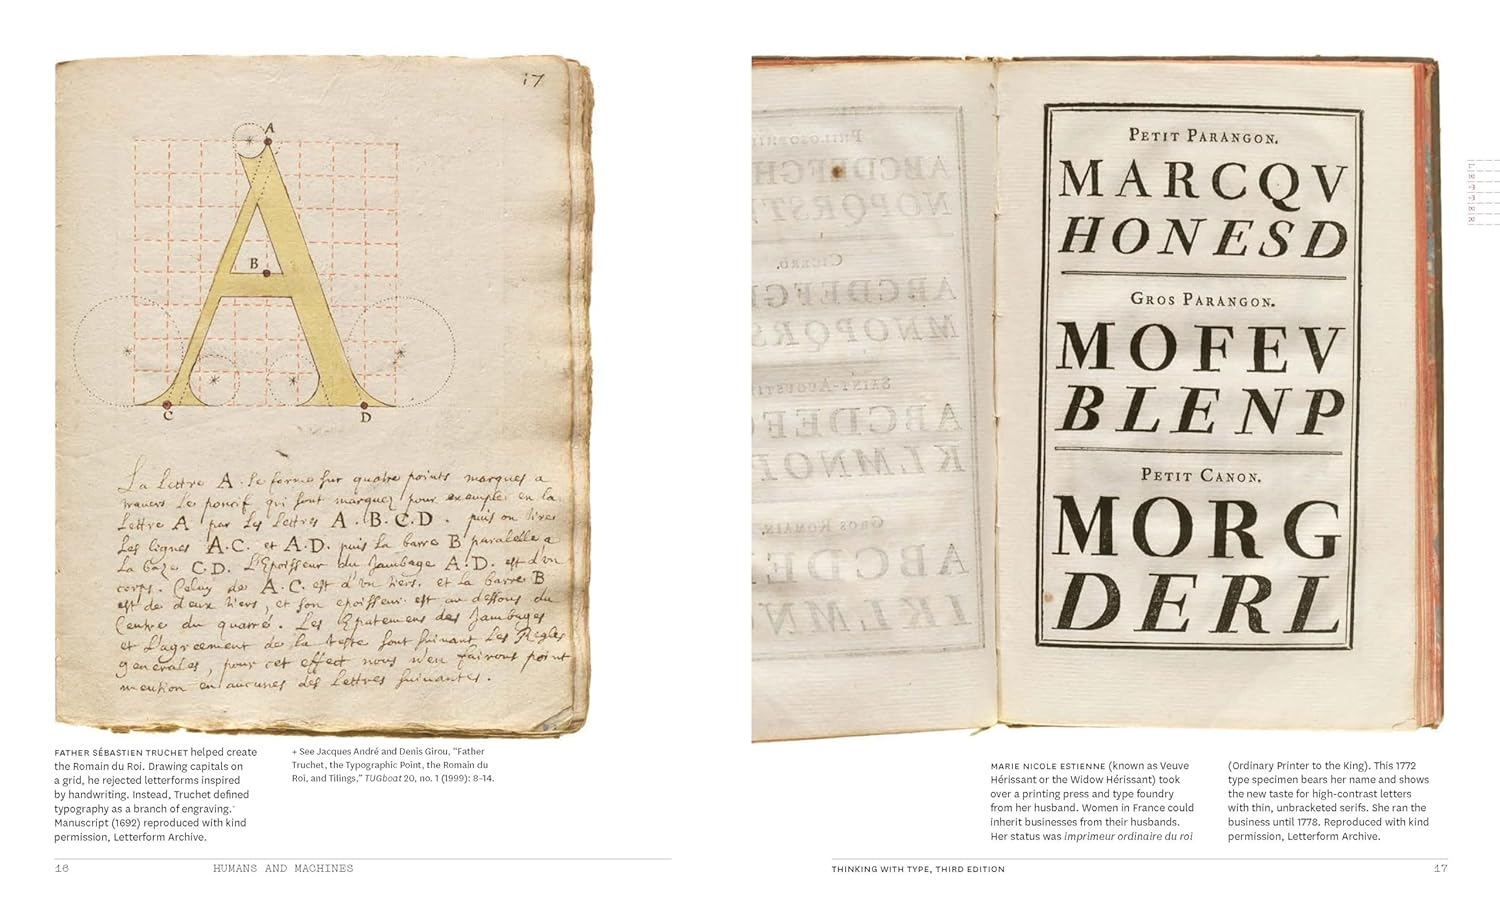 17
A
B
C
D
La Lettre A. se forme sur quatre points marques a
travers le poncif qui sont marquez pour exemple en la
Lettre A par les lettres A.B.C.D. puis on tires
les lignes A.C. et A.D. puis la barre B paralelle a
la baze C.D. L'Epoisseur du Jambage A.D. est d'vn
corps. Celuy de A.C. est d'vn tiers, et la barre B
est de deux tiers, et son epoisseur est au dessous du
Centre du quarré. Les Epatemens des Jambages
et l'agreement de la teste sont suivant les Regles
generales, pour cet effect nous n'en fairons point
mention en aucunes des lettres suivantes.
FATHER SÉBASTIEN TRUCHET helped create
the Romain du Roi. Drawing capitals on
a grid, he rejected letterforms inspired
by handwriting. Instead, Truchet defined
typography as a branch of engraving.+
Manuscript (1692) reproduced with kind
permission, Letterform Archive.
+ See Jacques André and Denis Girou, “Father
Truchet, the Typographic Point, the Romain du
Roi, and Tilings,” TUGboat 20, no. 1 (1999): 8–14.
16
HUMANS AND MACHINES
PETIT PARANGON.
MARCQV
HONESD
GROS PARANGON.
MOFEV
BLENP
PETIT CANON.
MORG
DERL
LETTER
MARIE NICOLE ESTIENNE (known as Veuve
Hérissant or the Widow Hérissant) took
over a printing press and type foundry
from her husband. Women in France could
inherit businesses from their husbands.
Her status was imprimeur ordinaire du roi
(Ordinary Printer to the King). This 1772
type specimen bears her name and shows
the new taste for high-contrast letters
with thin, unbracketed serifs. She ran the
business until 1778. Reproduced with kind
permission, Letterform Archive.
THINKING WITH TYPE, THIRD EDITION
17